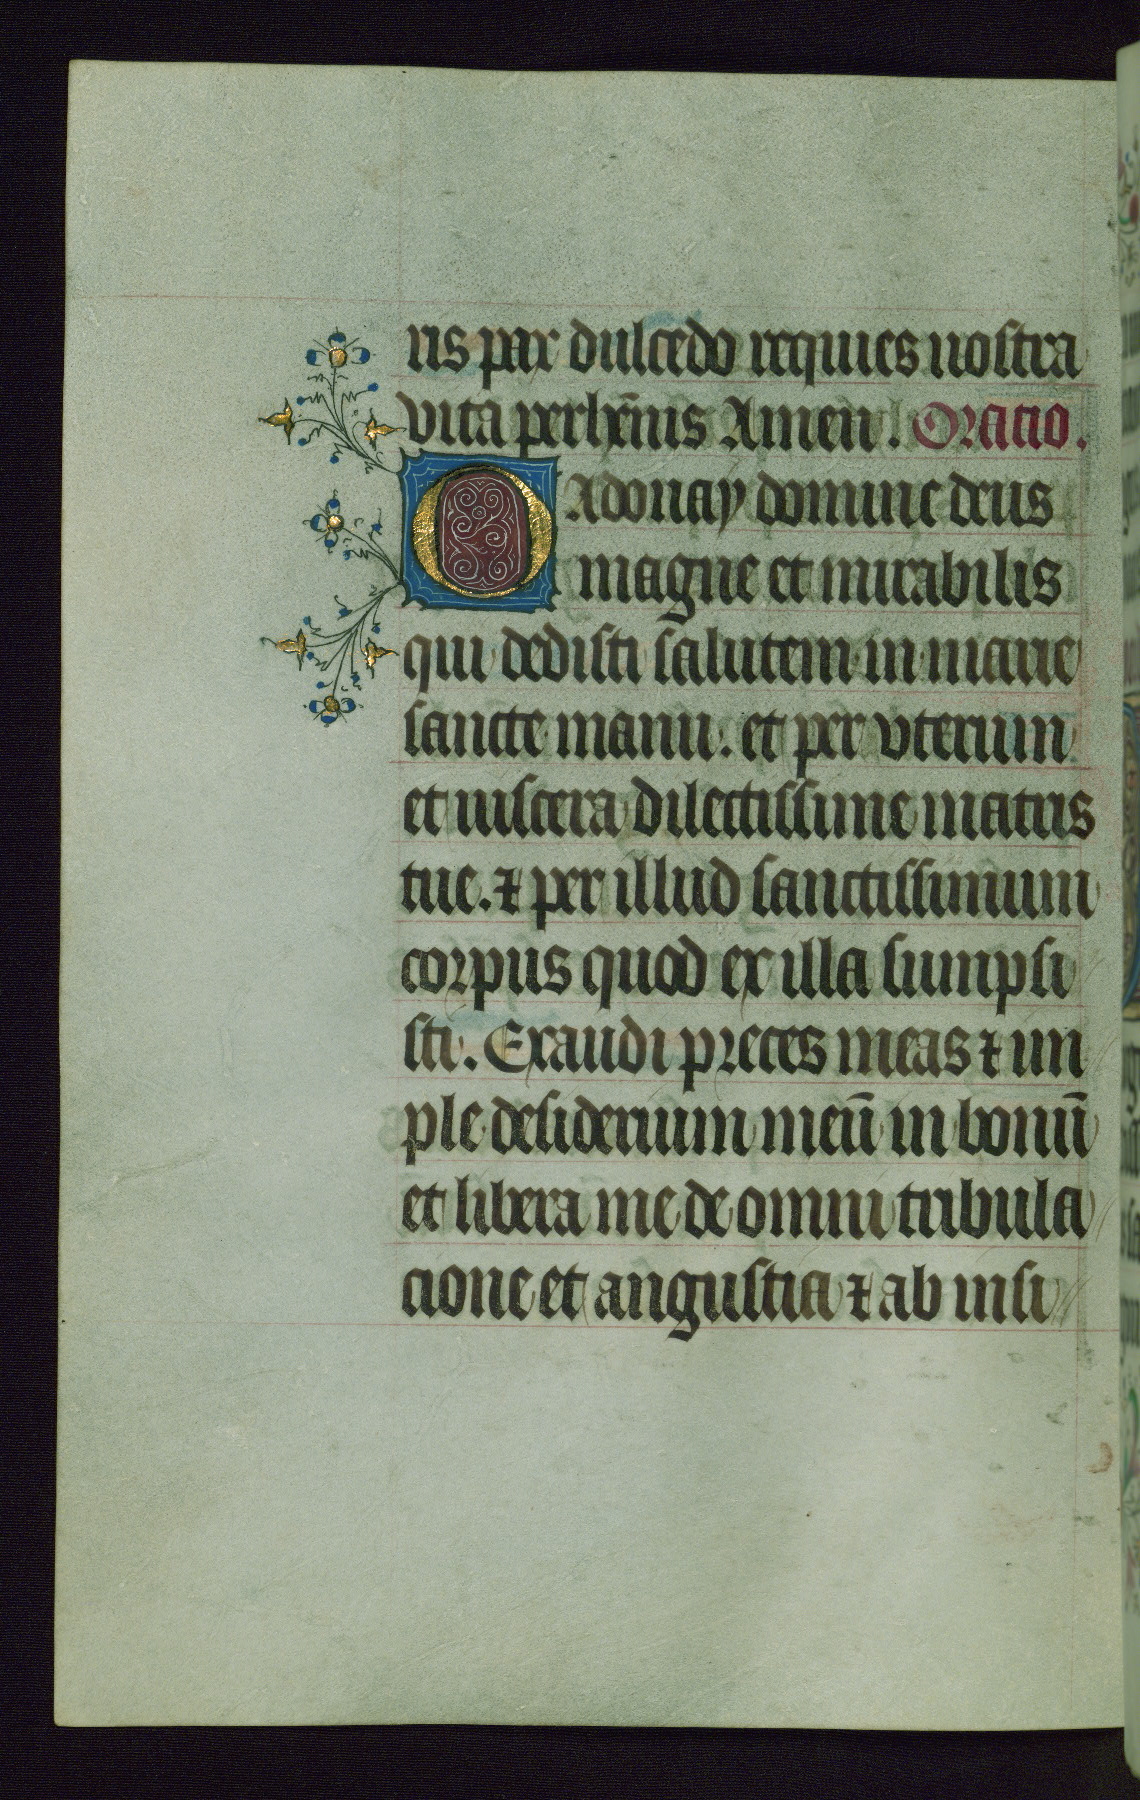 ris pax dulcedo requies nostra
vita perhēnis Amen. Oratio.
O Adonay domine deus
magne et mirabilis
qui dedisti salutem in mane
sancte manu. et per vterum
et uiscera dilectissime matris
tue. ⁊ per illud sanctissimum
corpus quod ex illa sumpsi
sti. Exaudi preces meas ⁊ im
ple desiderium meū in bonū
et libera me de omni tribula
cione et angustia ⁊ ab insi